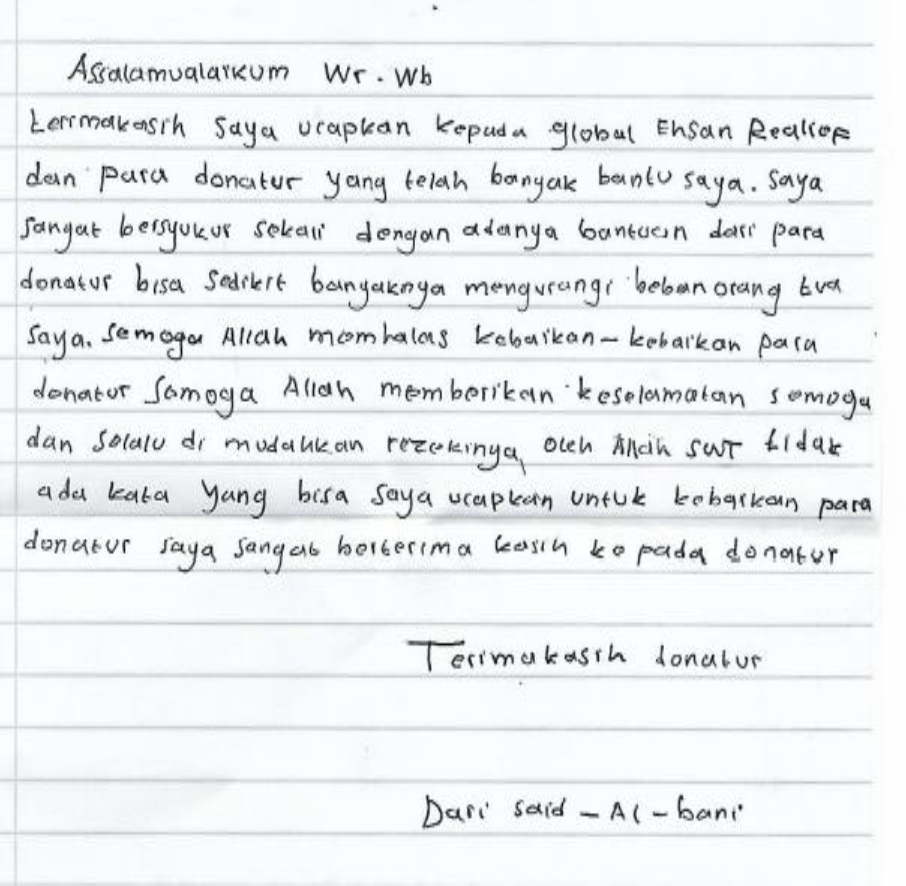 Assalamualaikum Wr. Wb
terimakasih saya ucapkan kepada global Ehsan Realief
dan para donatur yang telah banyak bantu saya. saya
sangat bersyukur sekali dengan adanya bantuan dari para
donatur bisa sedikit banyaknya mengurangi beban orang tua
saya. semoga Allah membalas kebaikan-kebaikan para
donatur semoga Allah memberikan keselamatan semoga
dan selalu di mudahkan rezekinya, oleh Allah SWT tidak
ada kata yang bisa saya ucapkan untuk kebaikan para
donatur saya sangat berterima kasih ke pada donatur
Terimakasih donatur
Dari said - Al - bani